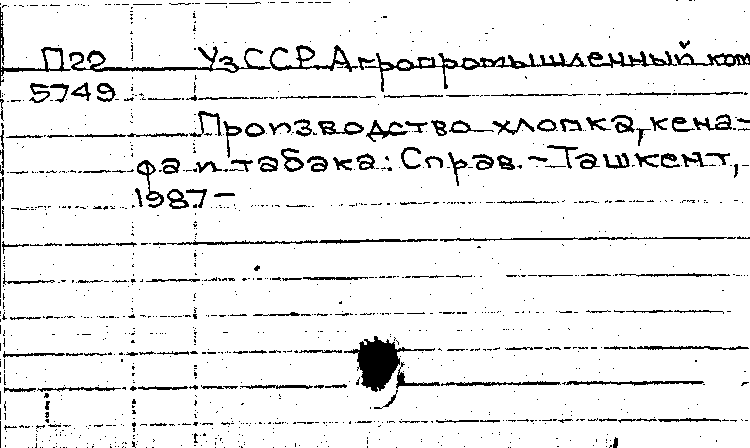 П22 УзССР. Агропромышленный ком
5749
Производство хлопка, кена-
фа и табака: Справ. - Ташкент,
1987-